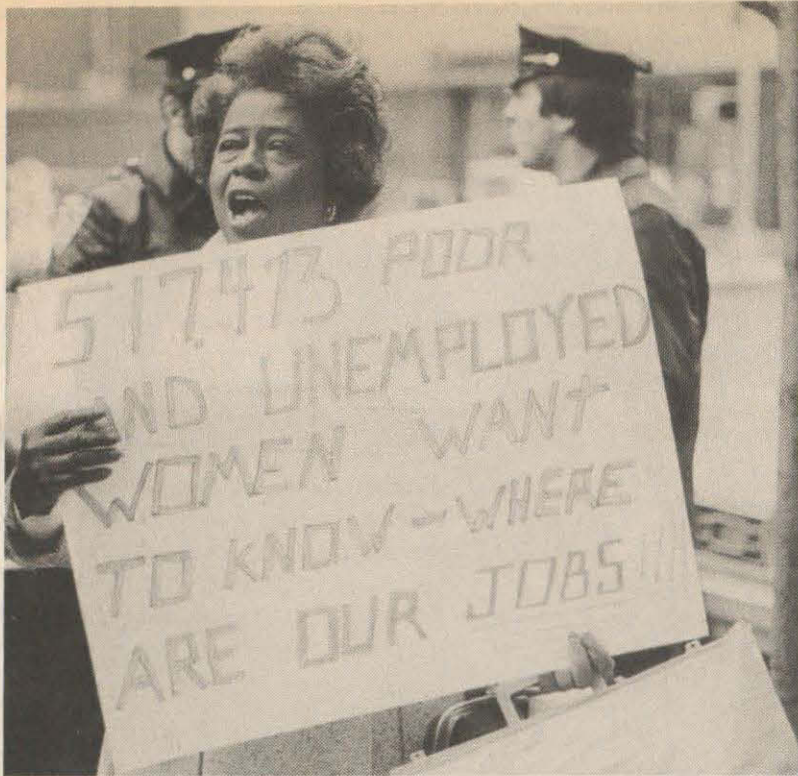 517,473 POOR
AND UNEMPLOYED
WOMEN WANT
TO KNOW - WHERE
ARE OUR JOBS!!!